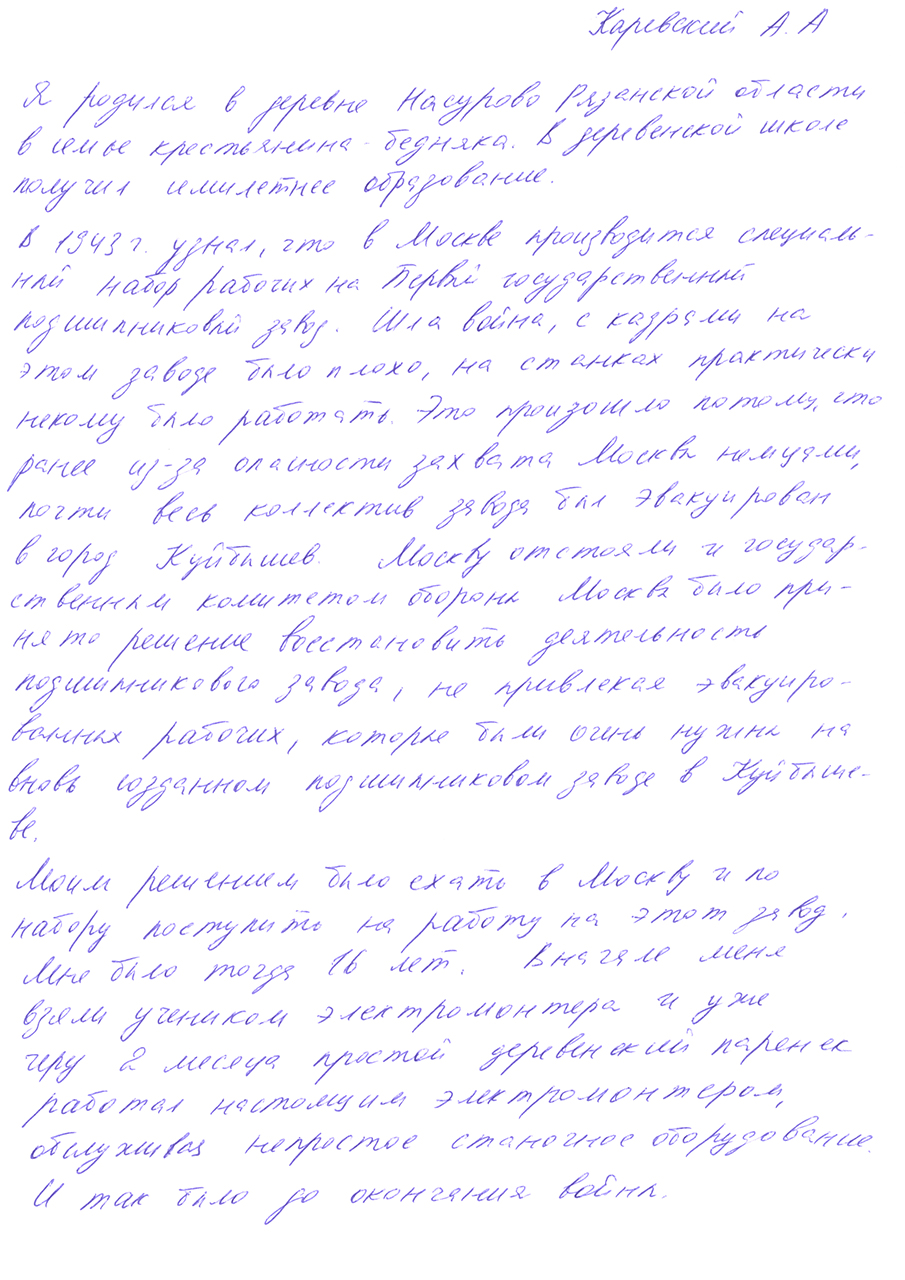 Каревский А. А
Я родился в деревне Насурово Рязанской области
в семье крестьянина-бедняка. В деревенской школе
получил семилетнее образование.
В 1943 г. узнал, что в Москве производится специаль-
ный набор рабочих на Первый государственный
подшипниковый завод. Шла война, с кадрами на
этом заводе было плохо, на станках практически
некому было работать. Это произошло потому, что
ранее из-за опасности захвата Москвы немцами,
почти весь коллектив завода был эвакуирован
в город Куйбышев. Москву отстояли и государ-
ственным комитетом обороны Москвы было при-
нято решение восстановить деятельность
подшипникового завода, не привлекая эвакуиро-
ванных рабочих, которые были очень нужны на
вновь созданном подшипниковом заводе в Куйбыше-
ве.
Моим решением было ехать в Москву и по
набору поступить на работу на этот завод.
Мне было тогда 16 лет. Вначале меня
взяли учеником электромонтера и уже
через 2 месяца простой деревенский паренек
работал настоящим электромонтером,
обслуживая непростое станочное оборудование.
И так было до окончания войны.